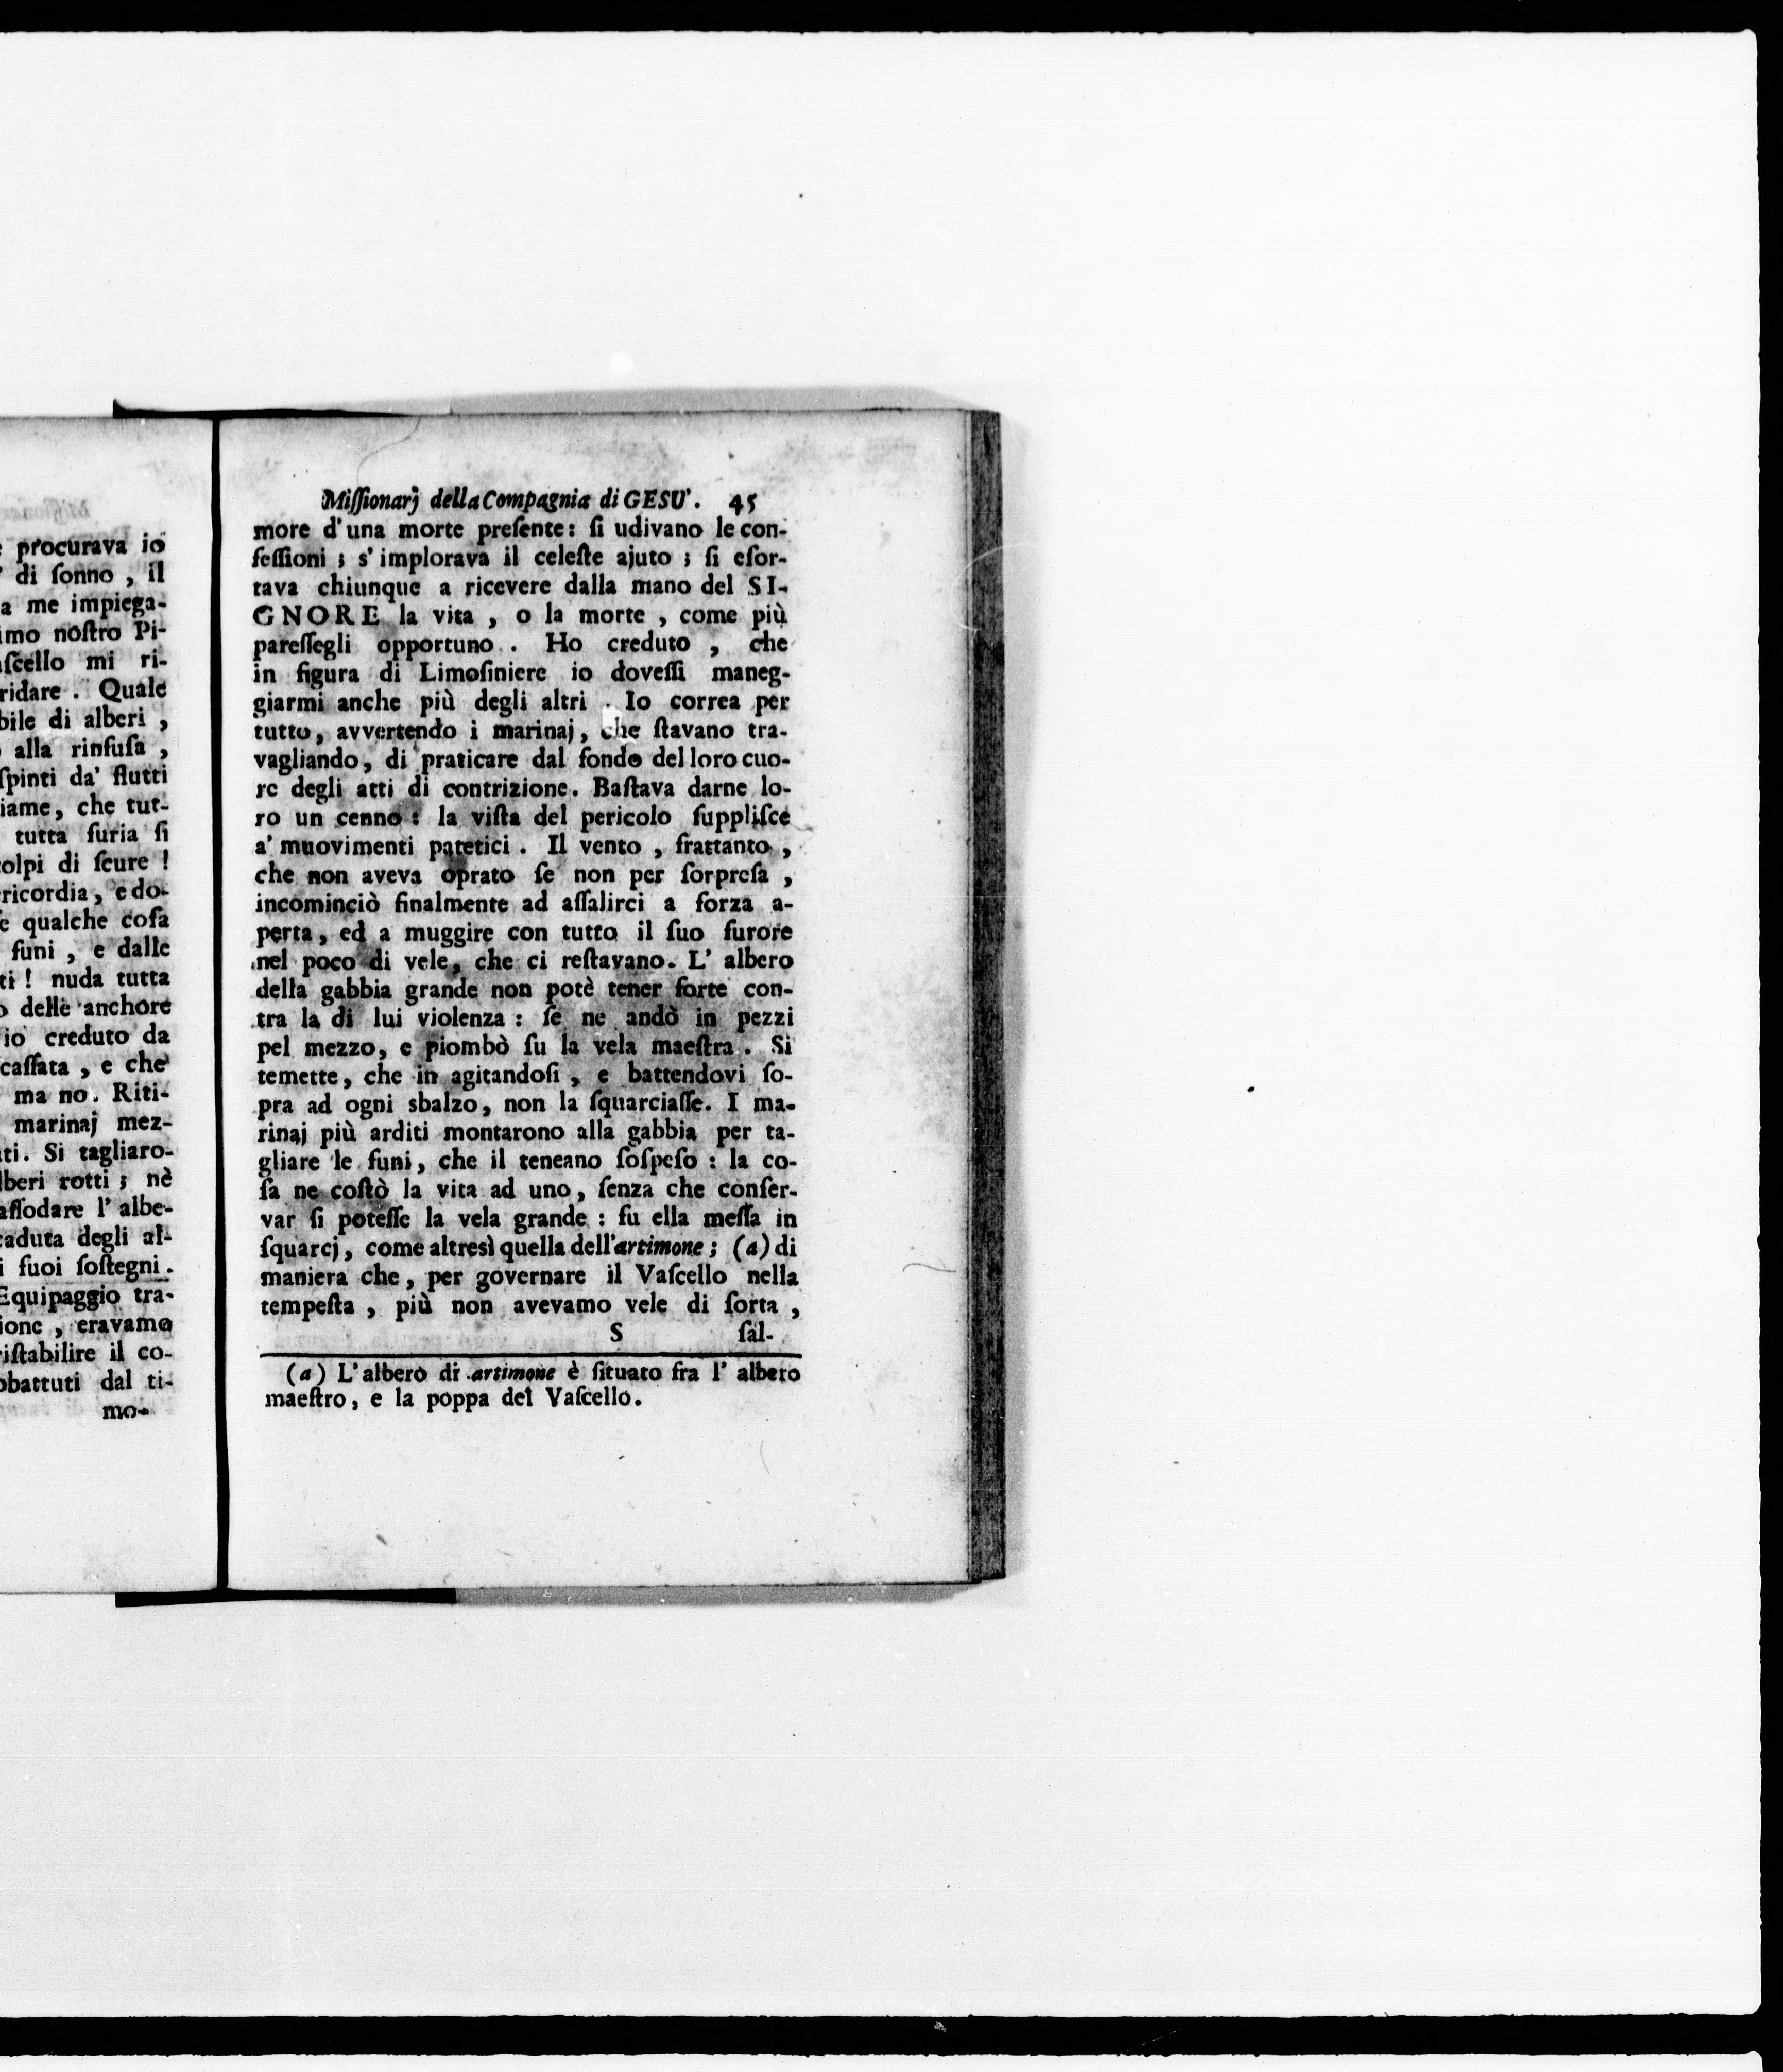 procurava io
di ſonno , il
a me impiega-
imo noſtro Pi-
ſcello mi ri-
ridare . Quale
bile di alberi ,
alla rinfuſa ,
ſpinti da' flutti
iame, che tut-
tutta furia ſi
colpi di ſcure !
ricordia, e do-
e qualche coſa
funi , e dalle
ti ! nuda tutta
o delle anchore
io creduto da
caſſata , e che
ma no. Riti-
marinaj mez-
ti. Si tagliaro-
lberi rotti ; nè
aſſodare l' albe-
caduta degli al-
i ſuoi ſoſtegni.
Equipaggio tra-
ione , eravamo
riſtabilire il co-
obattuti dal ti-
mo-
Miſſionarj della Compagnia di GESU'. 45
more d'una morte preſente: ſi udivano le con-
feſſioni ; s'implorava il celeſte ajuto ; ſi eſor-
tava chiunque a ricevere dalla mano del SI-
GNORE la vita , o la morte , come più
pareſſegli opportuno . Ho creduto , che
in figura di Limoſiniere io doveſſi maneg-
giarmi anche più degli altri . Io correa per
tutto, avvertendo i marinaj, che ſtavano tra-
vagliando, di praticare dal fondo del loro cuo-
re degli atti di contrizione. Baſtava darne lo-
ro un cenno : la viſta del pericolo ſuppliſce
a' muovimenti patetici . Il vento , frattanto ,
che non aveva oprato ſe non per ſorpreſa ,
incominciò finalmente ad aſſalirci a forza a-
perta, ed a muggire con tutto il ſuo furore
nel poco di vele, che ci reſtavano. L' albero
della gabbia grande non potè tener forte con-
tra la di lui violenza : ſe ne andò in pezzi
pel mezzo, e piombò ſu la vela maeſtra . Si
temette, che in agitandoſi , e battendovi ſo-
pra ad ogni sbalzo, non la ſquarciaſſe. I ma-
rinaj più arditi montarono alla gabbia per ta-
gliare le funi, che il teneano ſoſpeſo : la co-
ſa ne coſtò la vita ad uno, ſenza che conſer-
var ſi poteſſe la vela grande : fu ella meſſa in
ſquarcj, come altresì quella dell'artimone ; (a) di
maniera che, per governare il Vaſcello nella
tempeſta , più non avevamo vele di ſorta ,
S ſal-
(a) L'albero di artimone è ſituato fra l' albero
maeſtro, e la poppa del Vaſcello.